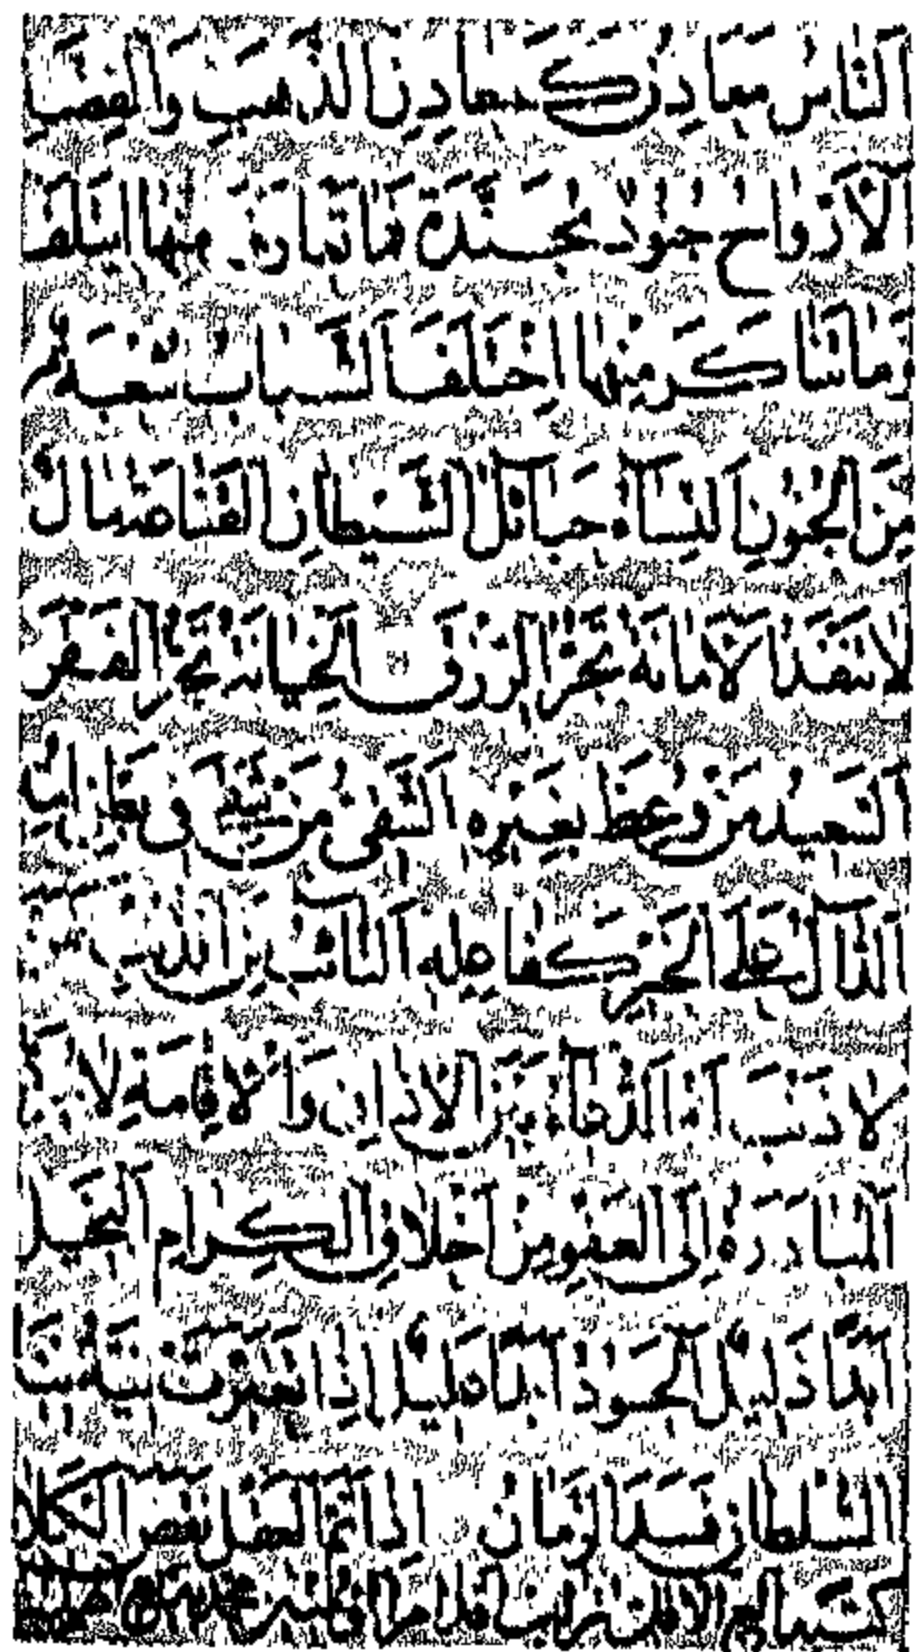 اَلنَّاسُ مَعَادِنُ كَمَعَادِنِ الذَّهَبِ وَالْفِضَّةِ
اَلْاَرْوَاحُ جُنُودٌ مُجَنَّدَةٌ فَمَا تَعَارَفَ مِنْهَا ائْتَلَفَ
وَمَا تَنَاكَرَ مِنْهَا اِخْتَلَفَ اَلشَّبَابُ شُعْبَةٌ
مِنَ الْجُنُونِ اَلنِّسَآءُ حَبَائِلُ الشَّيْطَانِ الْقَنَاعَةُ مَالٌ
لَا يَنْفَدُ اَلْاَمَانَةُ تَجُرُّ الرِّزْقَ اَلْخِيَانَةُ تَجُرُّ الْفَقْرَ
اَلسَّعِيدُ مَنْ وُعِظَ بِغَيْرِهِ اَلشَّقِىُّ مَنْ شَقِىَ فِى بَطْنِ
اَلدَّالُّ عَلَى الْخَيْرِ كَفَاعِلِهِ اَلتَّائِبُ مِنَ الذَّنْبِ كَمَنْ
لَا ذَنْبَ لَهُ اَلدُّعَاءُ بَيْنَ الْاَذَانِ وَالْاِقَامَةِ لَا
اَلْمُبَادَرَةُ اِلَى الْعَفْوِ مِنْ اَخْلَاقِ الْكِرَامِ اَلْبَخِيلُ
اَبَدًا ذَلِيلٌ اَلْحَسُودُ اَبَدًا عَلِيلٌ اِذَا تَغَيَّرَتْ نِيَّةُ
السُّلْطَانِ فَسَدَ الزَّمَانُ اِذَا تَمَّ الْعَقْلُ نَقَصَ الْكَلَامُ